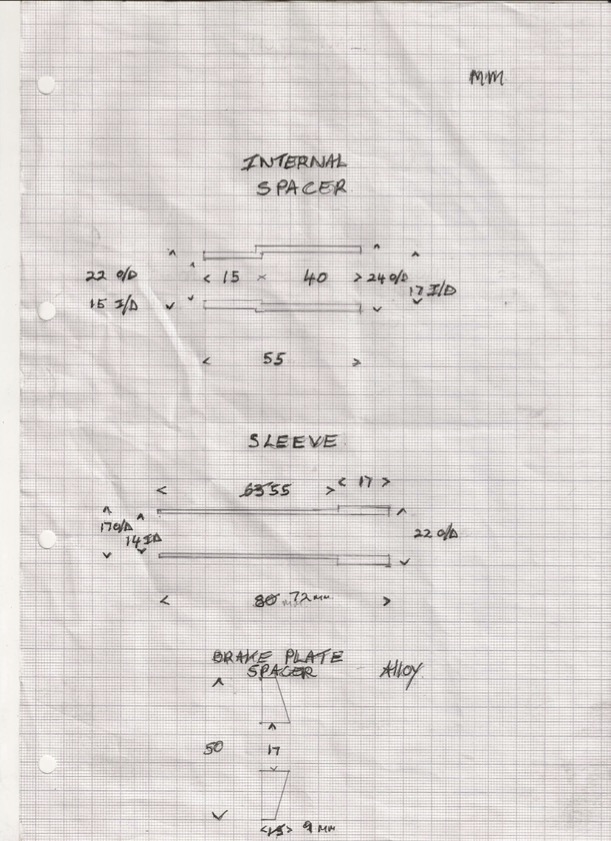 MM
INTERNAL
SPACER
22 O/D
15 I/D
15 × 40
24 O/D
17 I/D
55
SLEEVE
63 55
17
17 O/D
14 ID
22 O/D
80 mm 72 mm
BRAKE PLATE
SPACER
Alloy
50
17
15 9 mm